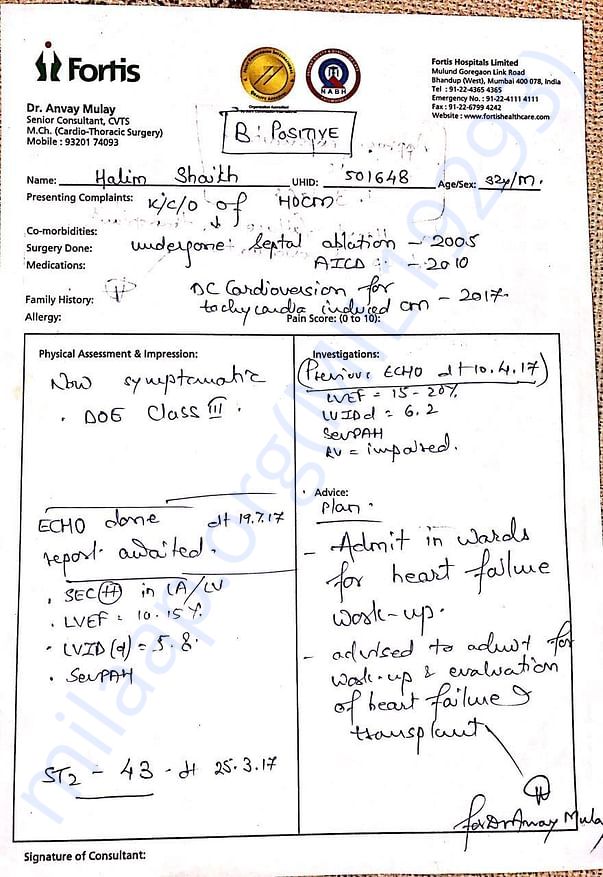 Fortis
NABH
Fortis Hospitals Limited
Mulund Goregaon Link Road
Bhandup (West), Mumbai 400 078, India
Tel : 91-22-4365 4365
Emergency No. : 91-22-4111 4111
Fax : 91-22-6799 4242
Website : www.fortishealthcare.com
Dr. Anvay Mulay
Senior Consultant, CVTS
M.Ch. (Cardio-Thoracic Surgery)
Mobile : 93201 74093
B: POSITIVE
Name: Halim Shaikh UHID: 501648 Age/Sex: 32y/M.
Presenting Complaints: K/C/O of HOCM
Co-morbidities:
Surgery Done: undergone: Septal ablation - 2005
Medications: AICD - 2010
Family History: DC Cardioversion for
tachycardia induced cm - 2017.
Allergy: Pain Score: (0 to 10):
Physical Assessment & Impression:
Now symptomatic
. DOE Class III.
ECHO done dt 19.7.17
report awaited.
. SEC (++) in LA/LV
. LVEF = 10.15%
. LVID (d) = 5.8
. Sev PAH
ST2 - 43 - dt 25.3.17
Investigations:
(Previous ECHO dt 10.4.17)
LVEF = 15-20%
LVIDd = 6.2
Sev PAH
RV = impaired.
Advice:
Plan.
- Admit in wards
for heart failure
work-up.
- advised to admit for
work-up & evaluation
of heart failure &
transplant
for Dr Anvay Mulay
Signature of Consultant:
milaap.org(MIL19293)